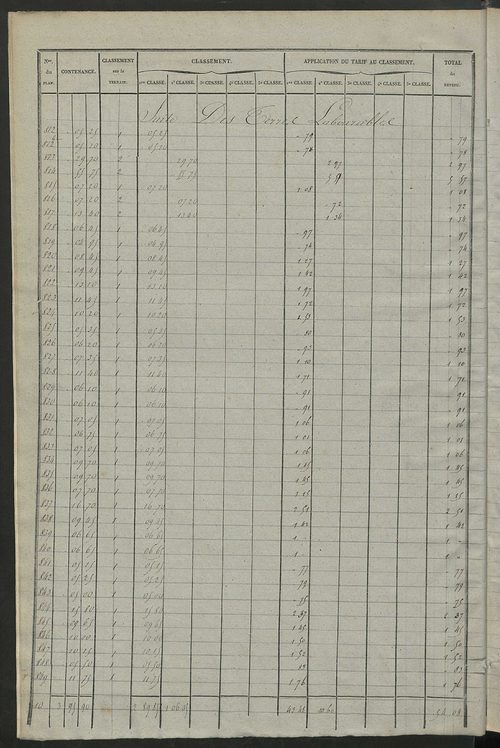 Nos. du PLAN. CONTENANCE. CLASSEMENT sur le TERRAIN. CLASSEMENT. APPLICATION DU TARIF AU CLASSEMENT. TOTAL du REVENU.
1re CLASSE. 2e CLASSE. 3e CLASSE. 4e CLASSE. 5e CLASSE. 1re CLASSE. 2e CLASSE. 3e CLASSE. 4e CLASSE. 5e CLASSE.
Suite Des Terres Labourables
05.25 1 05.25 79 79
05.20 1 05.20 78 78
29.70 2 29.70 2 97 2 97
814 55.75 2 55.75 5 57 5 57
815 07.20 1 07.20 1.08 1 08
816 07.20 2 07.20 72 72
817 13.40 2 13.40 1.34 1 34
818 06.45 1 06.45 97 97
819 04.95 1 04.95 74 74
820 08.45 1 08.45 1.27 1 27
821 09.45 1 09.45 1.42 1 42
822 13.10 1 13.10 1.97 1 97
823 11.45 1 11.45 1.72 1 72
824 10.20 1 10.20 1.53 1 53
825 05.35 1 05.35 80 80
826 06.20 1 06.20 93 93
827 07.35 1 07.35 1.10 1 10
828 11.40 1 11.40 1.71 1 71
829 06.10 1 06.10 91 91
830 06.10 1 06.10 91 91
831 07.05 1 07.05 1.06 1 06
832 06.75 1 06.75 1.01 1 01
833 07.05 1 07.05 1.06 1 06
834 09.70 1 09.70 1.45 1 45
835 09.70 1 09.70 1.45 1 45
836 07.70 1 07.70 1 15
837 16.70 1 16.70 2.51 2 51
838 09.45 1 09.45 1.42 1 42
839 06.65 1 06.65 1 - 1 -
840 06.65 1 06.65 1 - 1 -
841 05.15 1 05.15 77 77
842 05.25 1 05.25 79 79
843 05.00 1 05.00 75 75
844 15.80 1 15.80 2.37 2 37
845 09.65 1 09.65 1.45 1 45
846 10.00 1 10.00 1.50 1 50
847 10.15 1 10.15 1.52 1 52
848 05.50 1 05.50 83 83
849 11.75 1 11.75 1.76 1 76
1 06.05 10 60